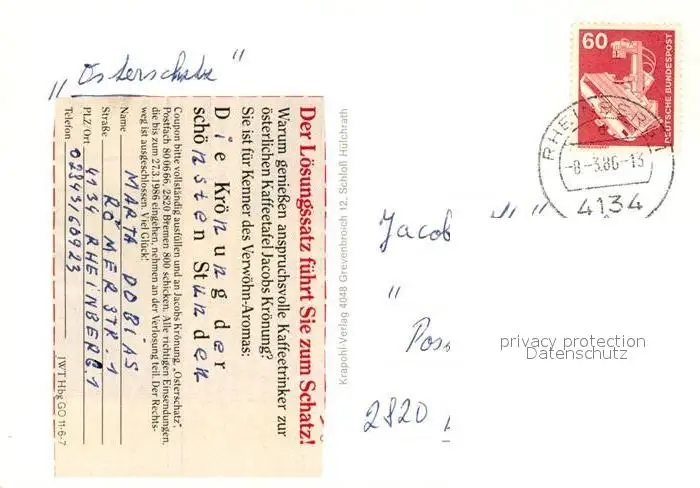 „Osterschatz"
Der Lösungssatz führt Sie zum Schatz!
Warum genießen anspruchsvolle Kaffeetrinker zur
österlichen Kaffeetafel Jacobs Krönung?
Sie ist für Kenner des Verwöhn-Aromas:
Die Krönung der
schönsten Stunden
Coupon bitte vollständig ausfüllen und an Jacobs Krönung „Osterschatz",
Postfach 80 06 66, 2820 Bremen 800 schicken. Alle richtigen Einsendungen,
die bis zum 27.3.1986 eingehen, nehmen an der Verlosung teil. Der Rechts-
weg ist ausgeschlossen. Viel Glück!
Name MARTA DOBIAS
Straße RÖMERSTR. 1
PLZ/Ort 4134 RHEINBERG. 1
Telefon 02843/60923
JWT Hbg GO 11-6-7
Krapohl-Verlag 4048 Grevenbroich 12, Schloß Hülchrath
60
DEUTSCHE BUNDESPOST
RHEINBERG
-8.-3.86-13
4134
Jacob
"
Pos
2820
privacy protection
Datenschutz